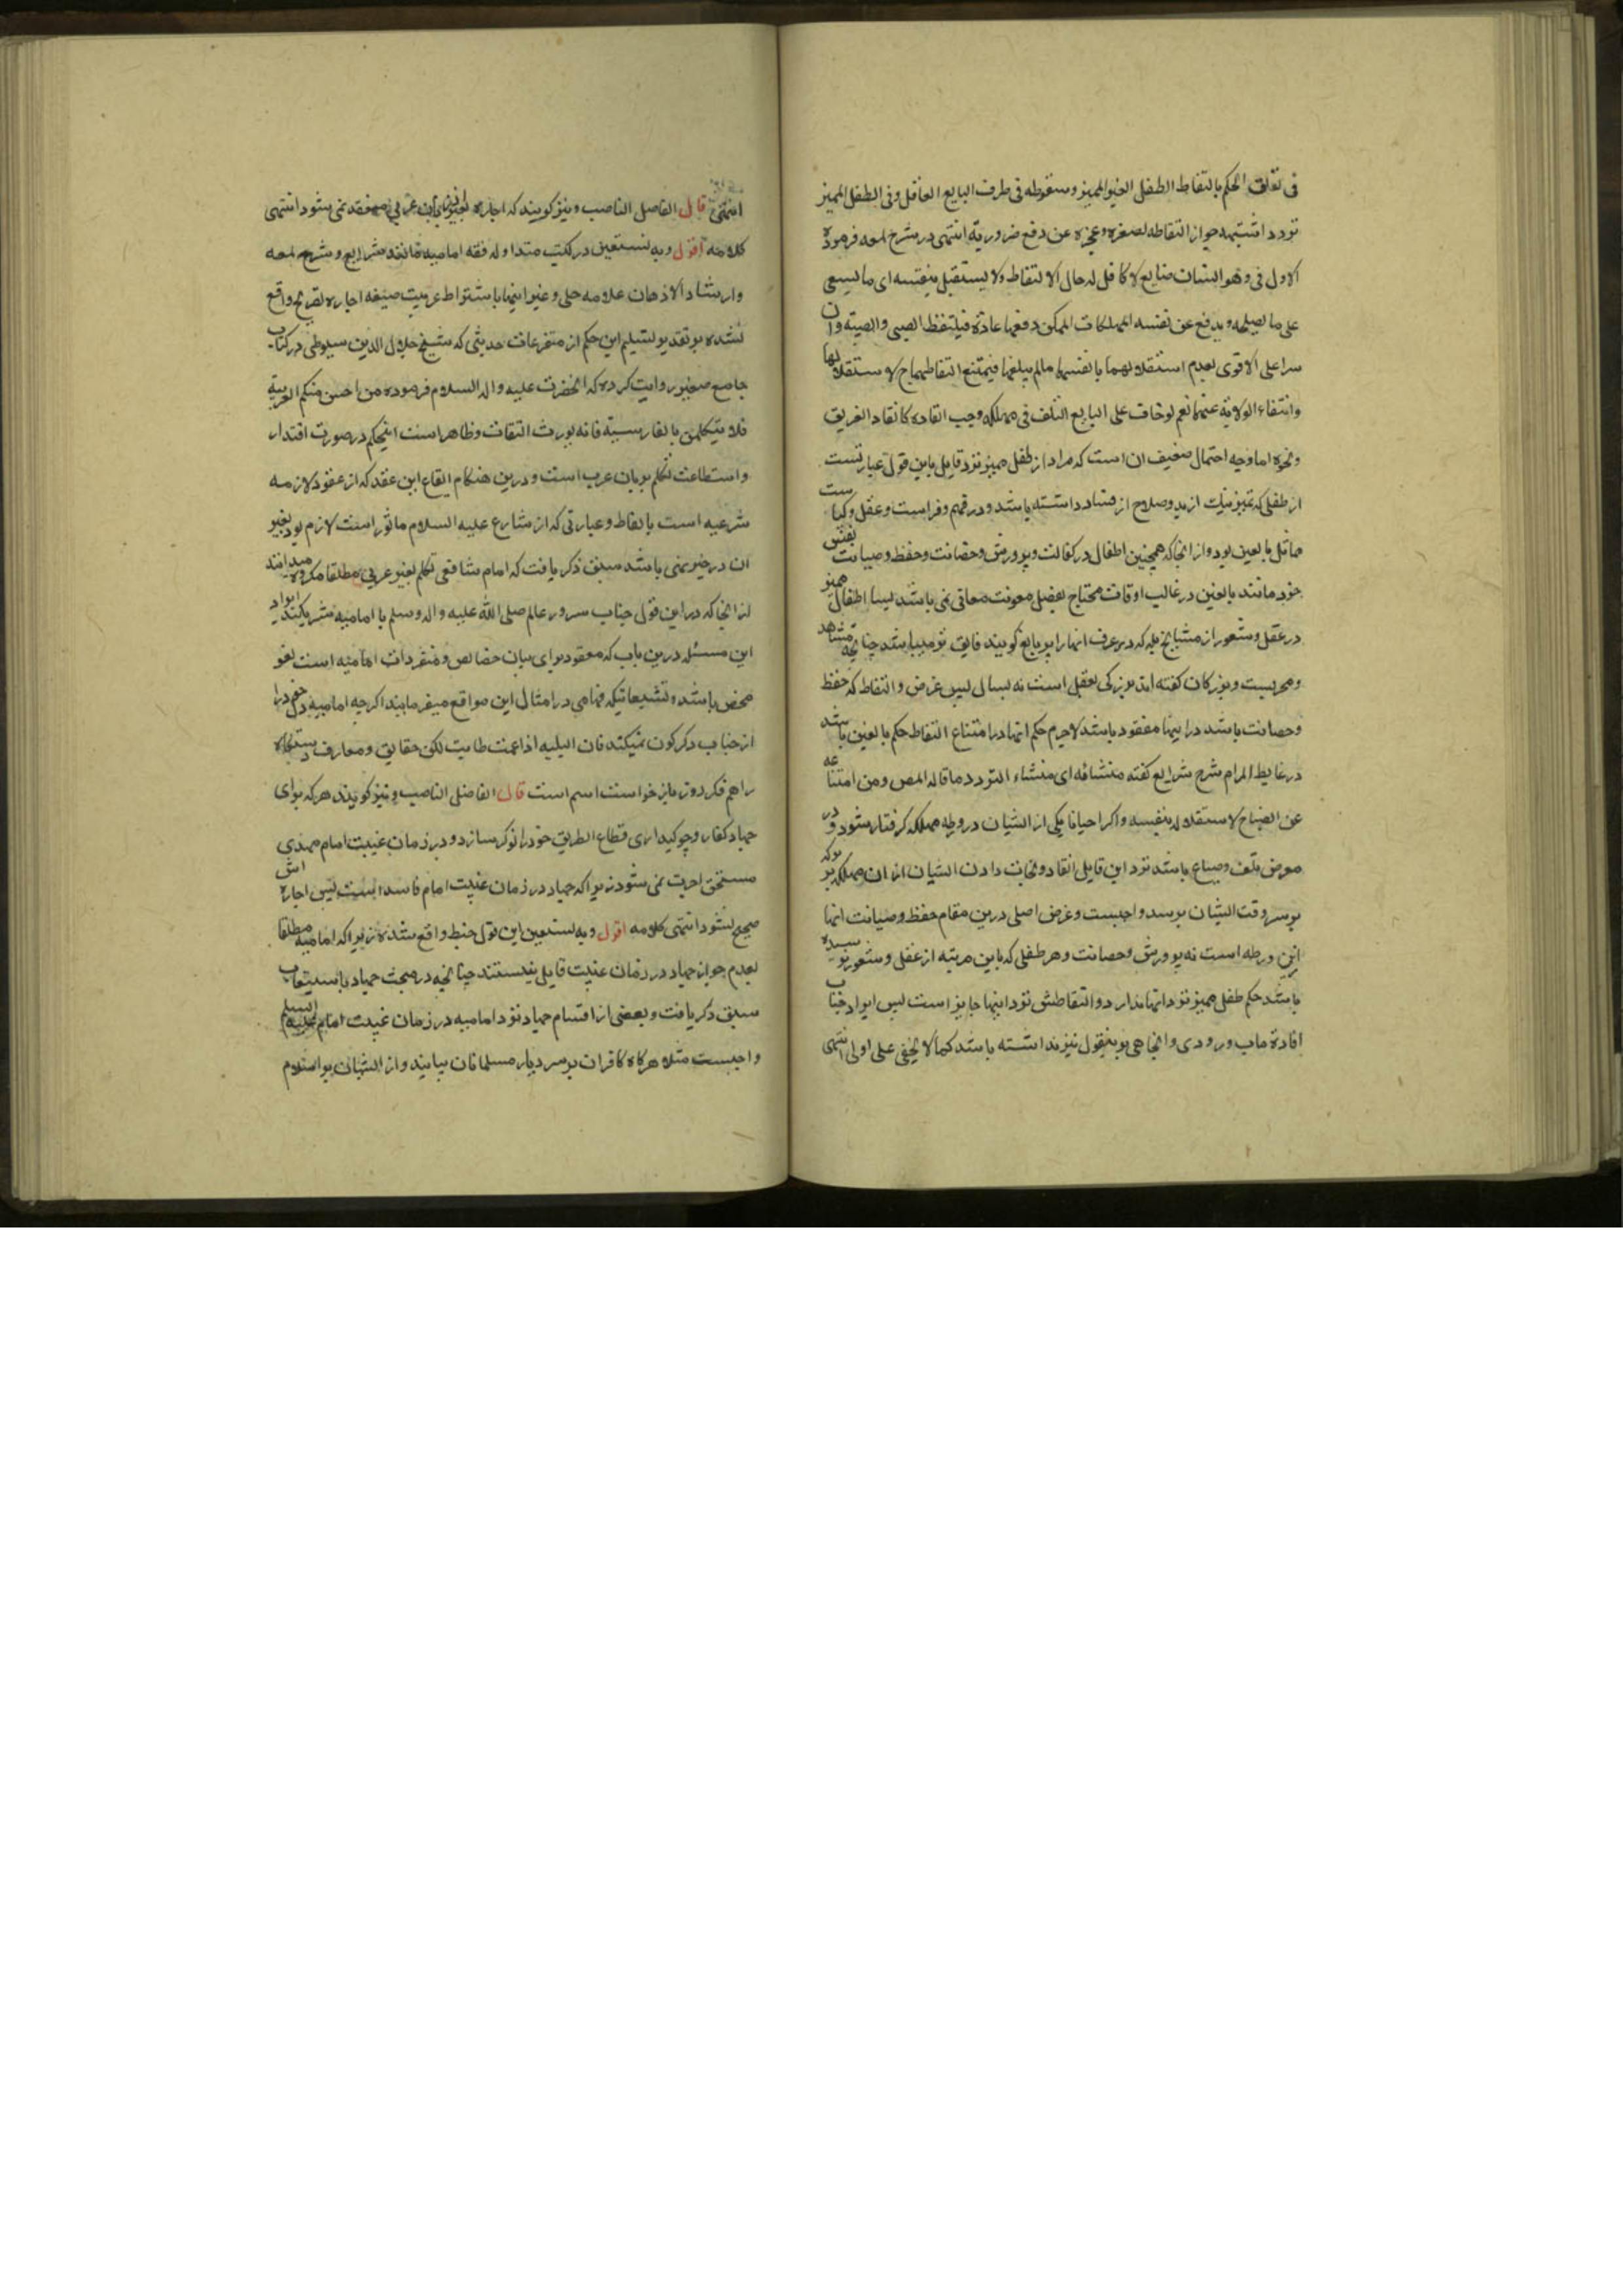 فی تعلق الحکم بالتقاط الطفل الغیر الممیز وسقوطه فی طرف البایع العاقل وفی الطفل الممیز
تردد اشبهه جواز التقاطه لصغره وعجزه عن دفع ضروریة انتهی در شرح لمعه فرموده
الاول فی وهو انسان ضایع لا کافل له حال الالتقاط ولا یستقل بنفسه ای ما یسعی
علی ما یصلحه ویدفع عن نفسه المهلکات الممکن دفعها عادة فیلتقط الصبی والصبیة وان
میزا علی الاقوی لعدم استقلالهما بانفسهما مالم یبلغا فیمتنع التقاطهما ح لاستقلالهما
وانتفاء الولایة عنهما نعم لو خاف علی البایع التلف فی مهلکه وجب انقاذه کانقاذ الغریق
ونحوه اما وجه احتمال ضعیف ان است که مراد از طفل ممیز نزد قایل باین قول عبارتست
از طفلی که تمیز نیک از بد وصلاح از فساد داشته باشد ودر فهم وفراست وعقل وکیاست
مماثل بالغین بود واز انجا که همچنین اطفال در کفالت وپرورش وحضانت وحفظ وصیانت نفس
خود مانند بالغین در غالب اوقات محتاج بفضل معونت معافی نمی باشد لیسا اطفال ممیز
در عقل وشعور از مشایخ بله که در عرف انها را پیر بالغ گویند فایق تر میباشند چنانچه مشاهد
ومجربست وبزرکان کفته اند بزرکی بعقل است نه بسال پس غرض والتقاط که حفظ
وحضانت باشد در اینها مفقود باشد لاجرم حکم انها در امتناع التقاط حکم بالغین باشد
در غایة المرام شرح شرایع کفته منشائه ای منشاء التردد ما قاله المص ومن امتناعه
عن الضیاع لاستقلاله بنفسه واکر احیانا یکی از ایشان در ورطه مهلکه گرفتار شود ودر
معرض تلف وضیاع باشد نزد این قایل انقاذ ونجات دادن ایشان از ان مهلکه بر هر که
بر سر وقت ایشان برسد واجبست وغرض اصلی درین مقام حفظ وصیانت انها
ازین ورطه است نه پرورش وحضانت وهر طفلی که باین مرتبه از عقل وشعور نرسیده
باشد حکم طفل ممیز نزد انها ندارد والتقاطش نزد اینها جایز است پس ایراد جناب
افادة ماب ورودی واتجاهی برینقول نیز نداشته باشد کما لا یخفی علی اولی النهی
انتهی قال الفاضل الناصب ونیز کویند که اجاره بغیر زبان عربی منعقد نمی شود انتهی
کلامه اقول وبه نستعین در کتب متداوله فقه امامیه مانند شرایع وشرح لمعه
وارشاد الاذهان علامه حلی وغیر اینها باشتراط عربیت صیغه اجاره تصریح واقع
نشده بر تقدیر تسلیم این حکم از متفرعات حدیثی که شیخ جلال الدین سیوطی در کتاب
جامع صغیر روایت کرده که انحضرت علیه واله السلام فرموده من احسن منکم العربیة
فلا یتکلمن بالفارسیة فانه یورث النفاق وظاهر است اینحکم در صورت اقتدار
واستطاعت تکلم بزبان عرب است ودرین هنکام ایقاع این عقد که از عقود لازمه
شرعیه است بالفاظ وعبارتی که از شارع علیه السلام ماثور است لازم بود بغیر
ان درخیر نمی باشد سبق ذکر یافت که امام شافعی تکلم بغیر عربی مطلقا مکروه میدانند
از انجا که در این قول جناب سرور عالم صلی الله علیه واله وسلم با امامیه شریکند ایراد
این مسئله درین باب که معقود برای بیان خصایص ومتفردات امامیه است لغو
محض باشد وتشیعاتیکه فهامی در امثال این مواقع میفرمایند اکرچه امامیه دل خود را
از جناب دکرکون نمیکند فان البلیه اذا عمت طابت لکن حقایق ومعارف دستکاه
را هم فکر روز بازخواست اسم است قال الفاضل الناصب ونیز کویند هر که برای
جهاد کفار وچوکیداری قطاع الطریق خود را نوکر سازد ودر زمان غیبت امام مهدی
مستحق اجرت نمی شود زیرا که جهاد در زمان غیبت امام فاسد است پس اجاره اش
صحیح نشود انتهی کلامه اقول وبه نستعین این نقل خبط واقع شده زیرا که امامیه مطلقا
بعدم جواز جهاد در زمان غیبت قایل نیستند چنانچه در مبحث جهاد باستیعاب
سبق ذکر یافت وبعضی از اقسام جهاد نزد امامیه در زمان غیبت امام علیه السلم
واجبست مثلا هرکاه کافران بر سر دیار مسلمانان بیایند واز ایشان بر اسلام